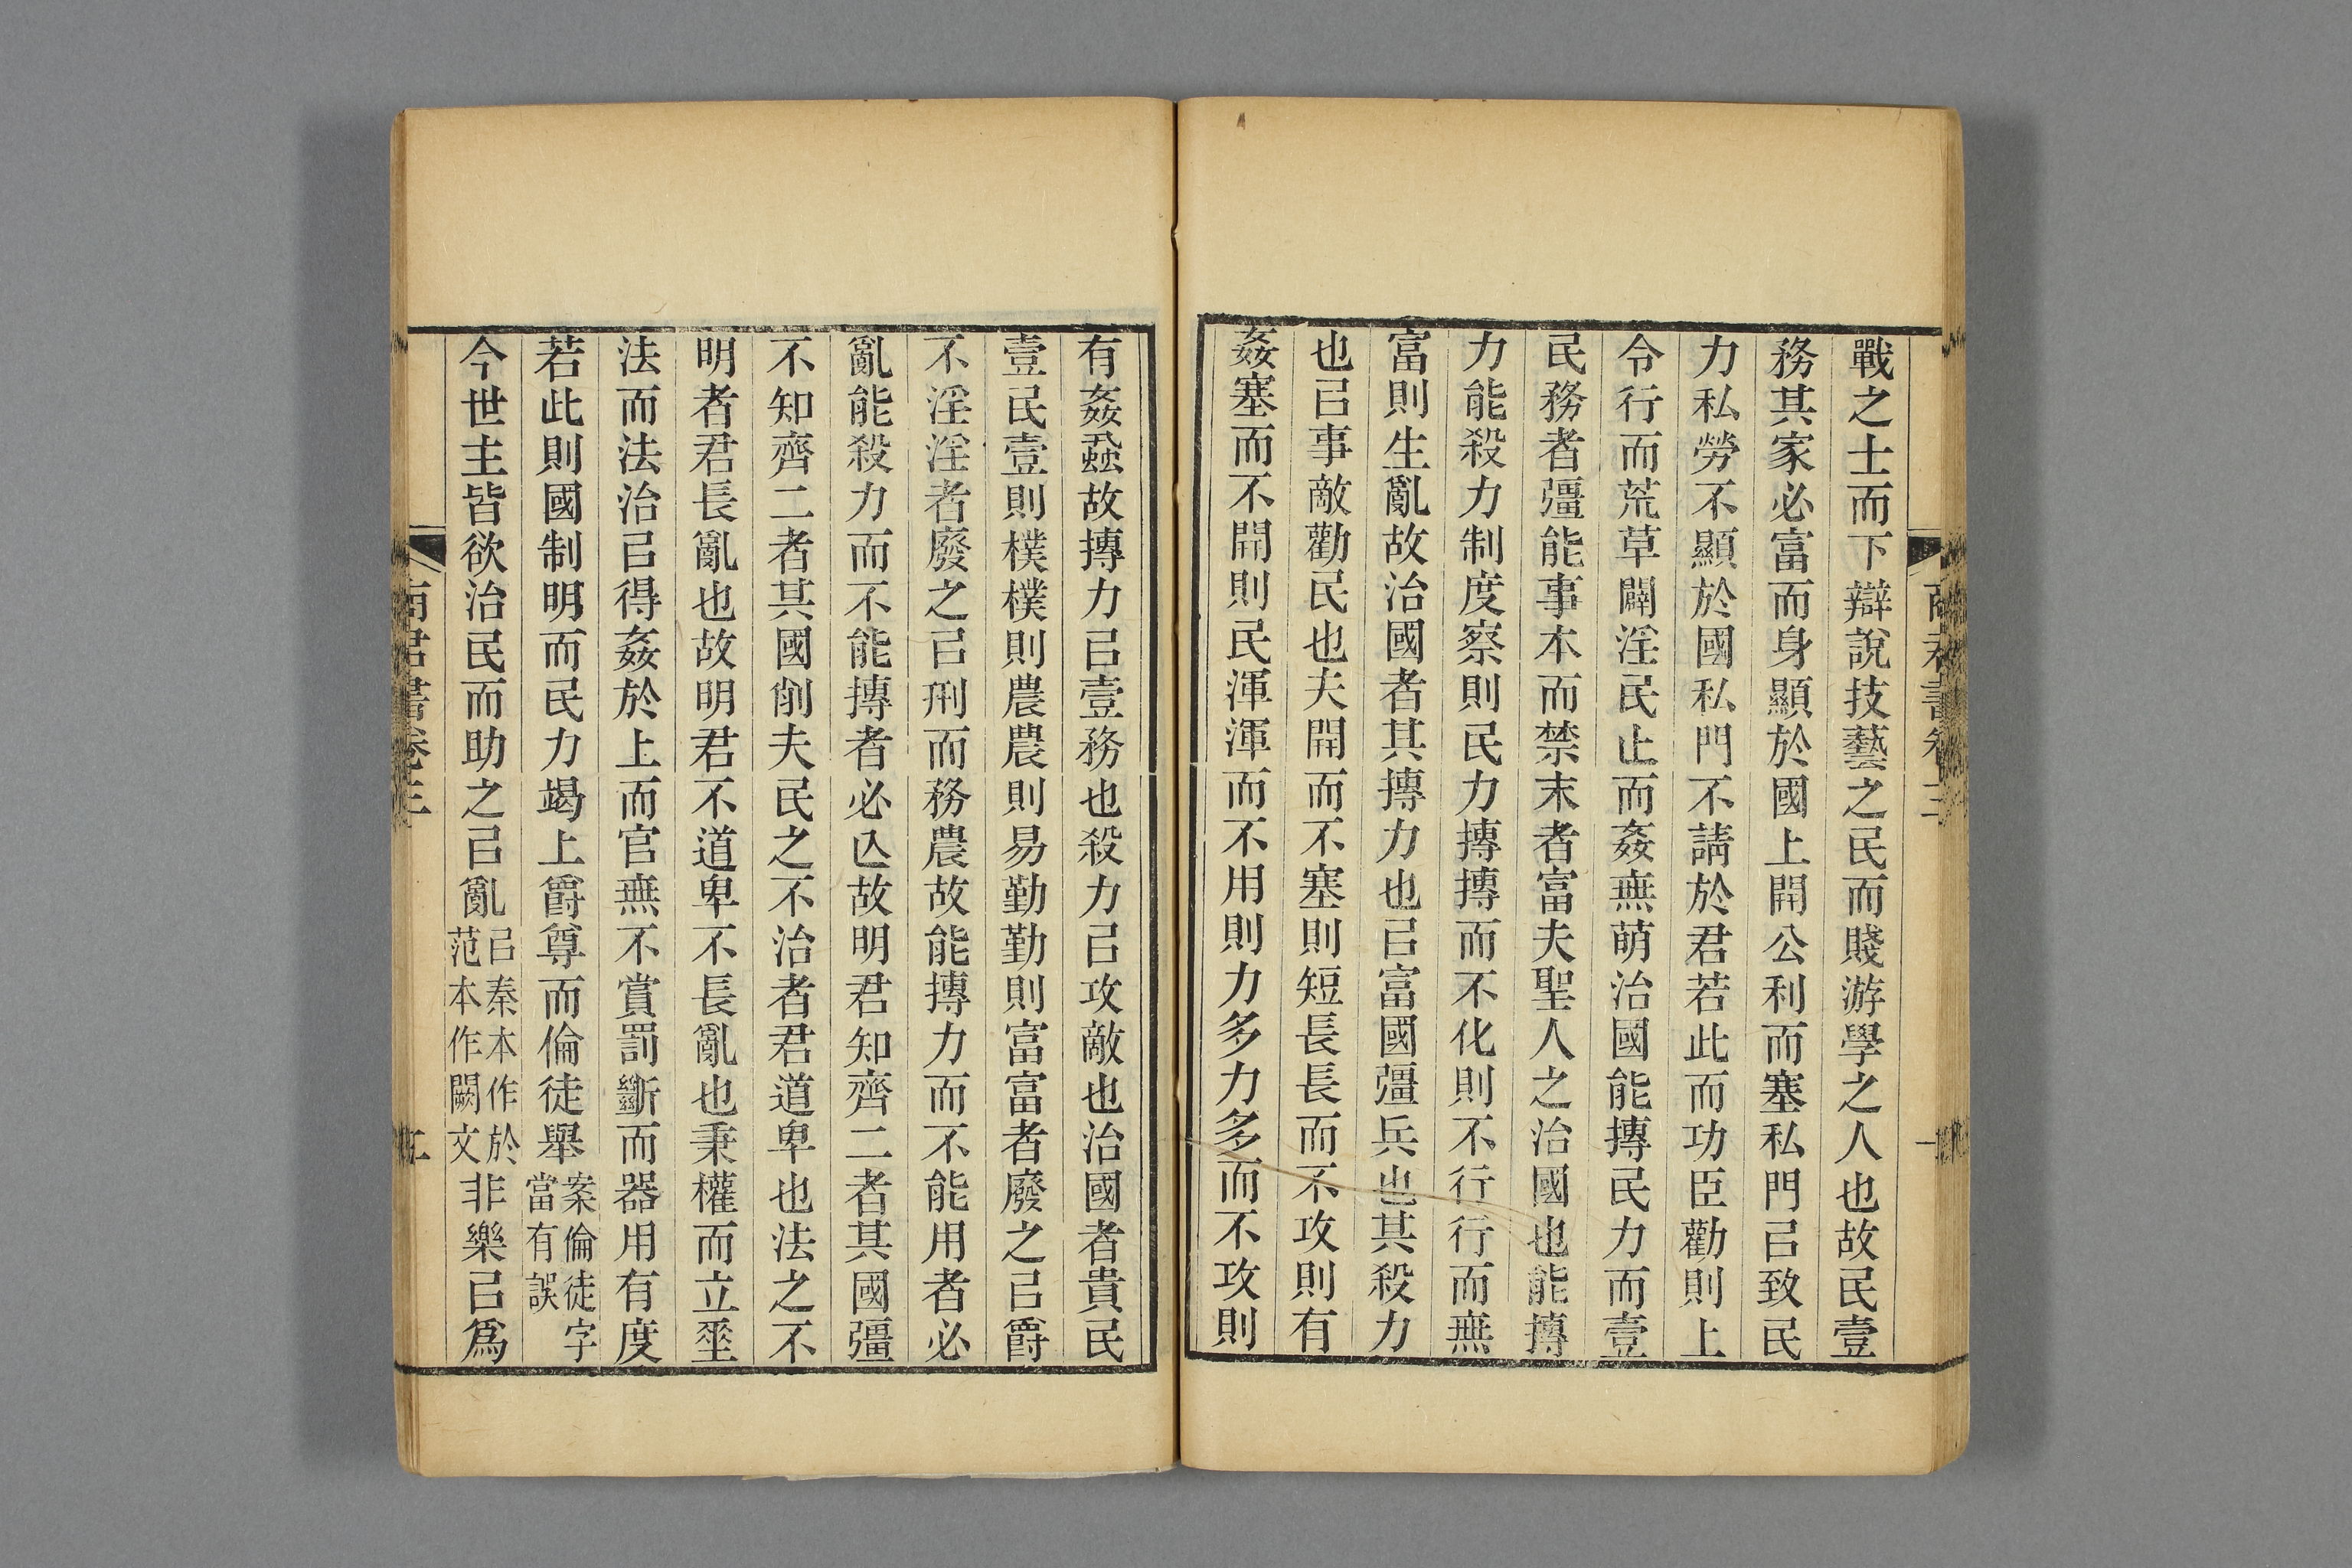 戰之士而下辯說技藝之民而賤游學之人也故民壹
務其家必富而身顯於國上開公利而塞私門㠯致民
力私勞不顯於國私門不請於君若此而功臣勸則上
令行而荒草闢淫民止而姦無萌治國能摶民力而壹
民務者彊能事本而禁末者富夫聖人之治國也能摶
力能殺力制度察則民力摶摶而不化則不行行而無
富則生亂故治國者其摶力也㠯富國彊兵也其殺力
也㠯事敵勸民也夫開而不塞則短長長而不攻則有
姦塞而不開則民渾渾而不用則力多力多而不攻則
有姦蝨故摶力㠯壹務也殺力㠯攻敵也治國者貴民
壹民壹則樸樸則農農則易勤勤則富富者廢之㠯爵
不淫淫者廢之㠯刑而務農故能摶力而不能用者必
亂能殺力而不能摶者必亾故明君知齊二者其國彊
不知齊二者其國削夫民之不治者君道卑也法之不
明者君長亂也故明君不道卑不長亂也秉權而立埀
法而法治㠯得姦於上而官無不賞罰斷而器用有度
若此則國制明而民力竭上爵尊而倫徒舉案倫徒字當有誤
今世主皆欲治民而助之㠯亂㠯秦本作於范本作闕文非樂㠯爲
商君書卷三
二